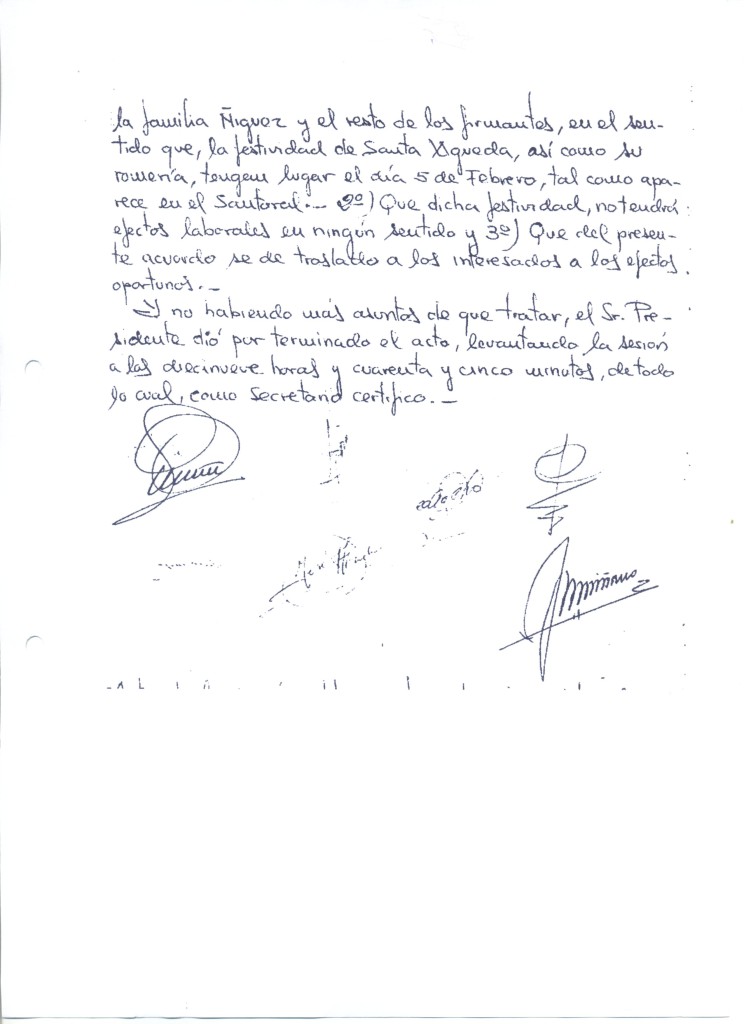 la familia Ñiguez y el resto de los firmantes, en el sen-
tido que, la festividad de Santa Agueda, así como su
romería, tengan lugar el día 5 de Febrero, tal como apa-
rece en el Santoral.-- 2º) Que dicha festividad, no tendrá
efectos laborales en ningún sentido y 3º) Que del presen-
te acuerdo se de traslado a los interesados a los efectos
oportunos.-
Y no habiendo más asuntos de que tratar, el Sr. Pre-
sidente dió por terminado el acto, levantando la sesión
a las diecinueve horas y cuarenta y cinco minutos, de todo
lo cual, como Secretario certifico.-
Miñano